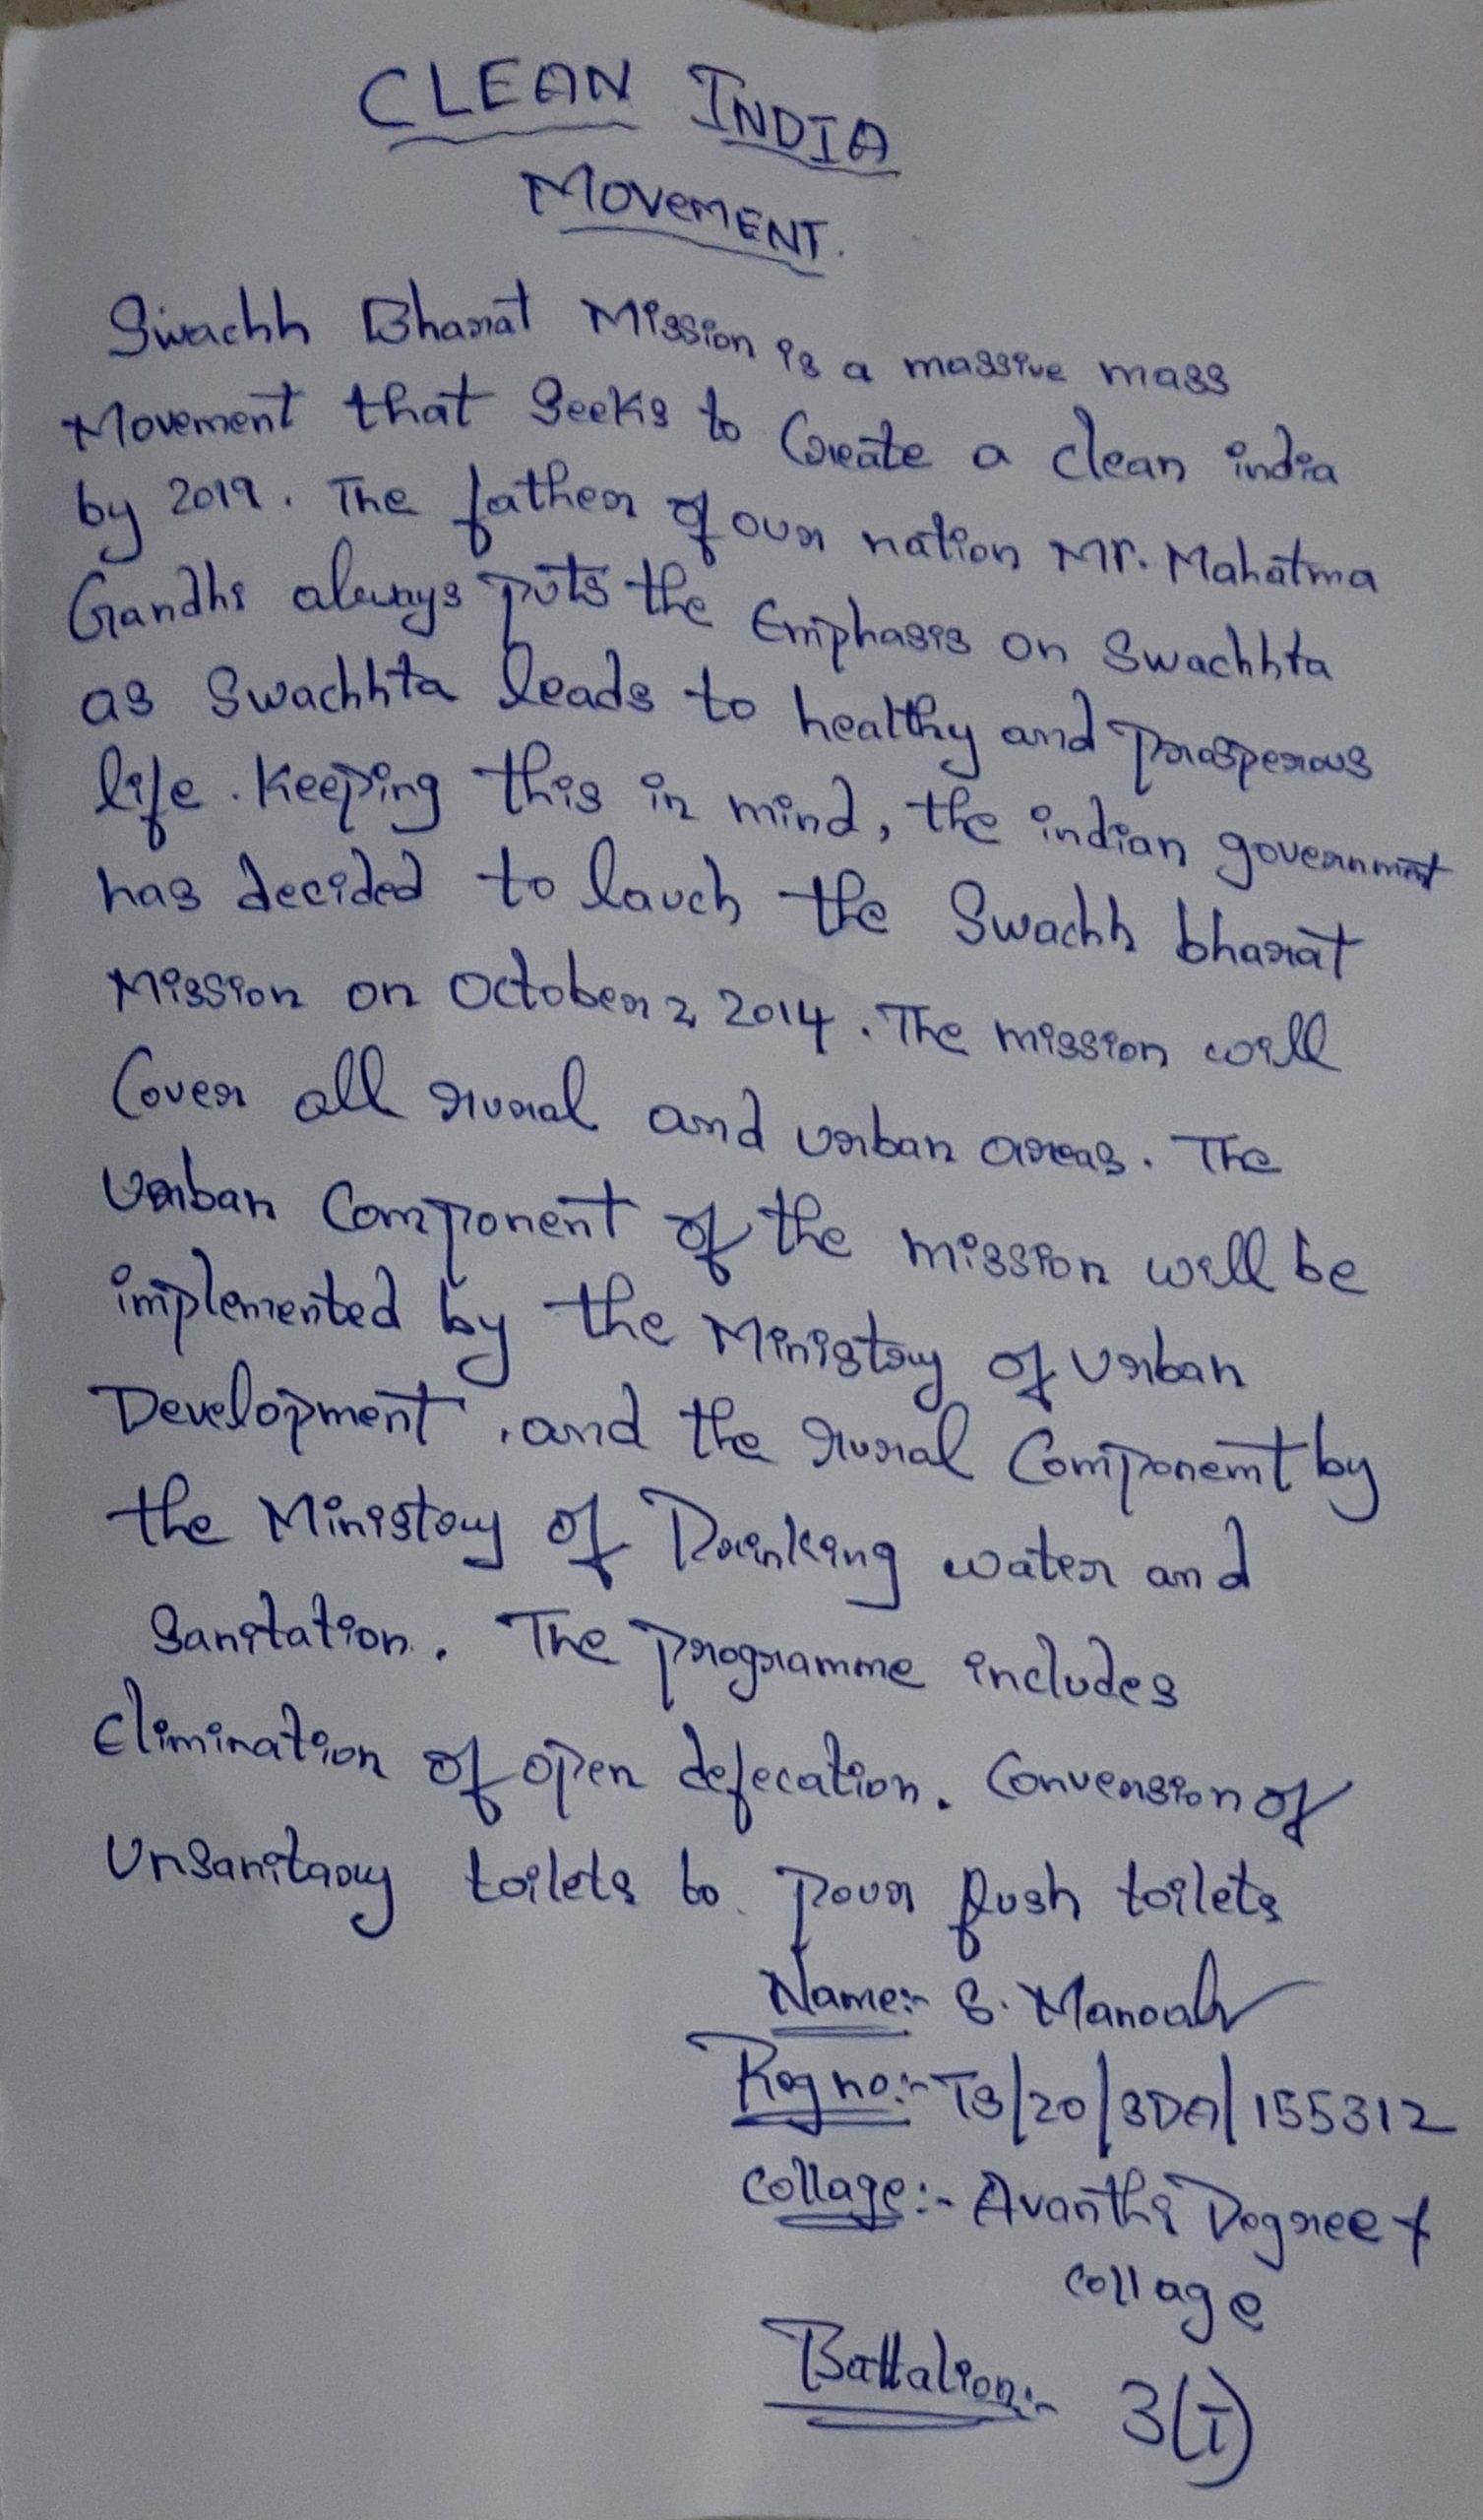 CLEAN INDIA
MOVEMENT.
Swachh Bharat Mission is a massive mass
Movement that Seeks to Create a clean india
by 2019. The father of our nation Mr. Mahatma
Gandhi always puts the Emphasis on Swachhta
as Swachhta leads to healthy and prosperous
life. Keeping this in mind, the indian government
has decided to lauch the Swachh bharat
Mission on October 2, 2014. The mission will
Cover all rural and urban areas. The
Urban Component of the mission will be
implemented by the Ministry of Urban
Development, and the rural Component by
the Ministry of Drinking water and
Sanitation. The programme includes
Elimination of open defecation. Conversion of
Unsanitary toilets to pour flush toilets
Name:- S. Manoah
Reg no:- TS/20/SDA/155312
Collage:- Avanthi Degree
collage
Battalion:- 3(T)